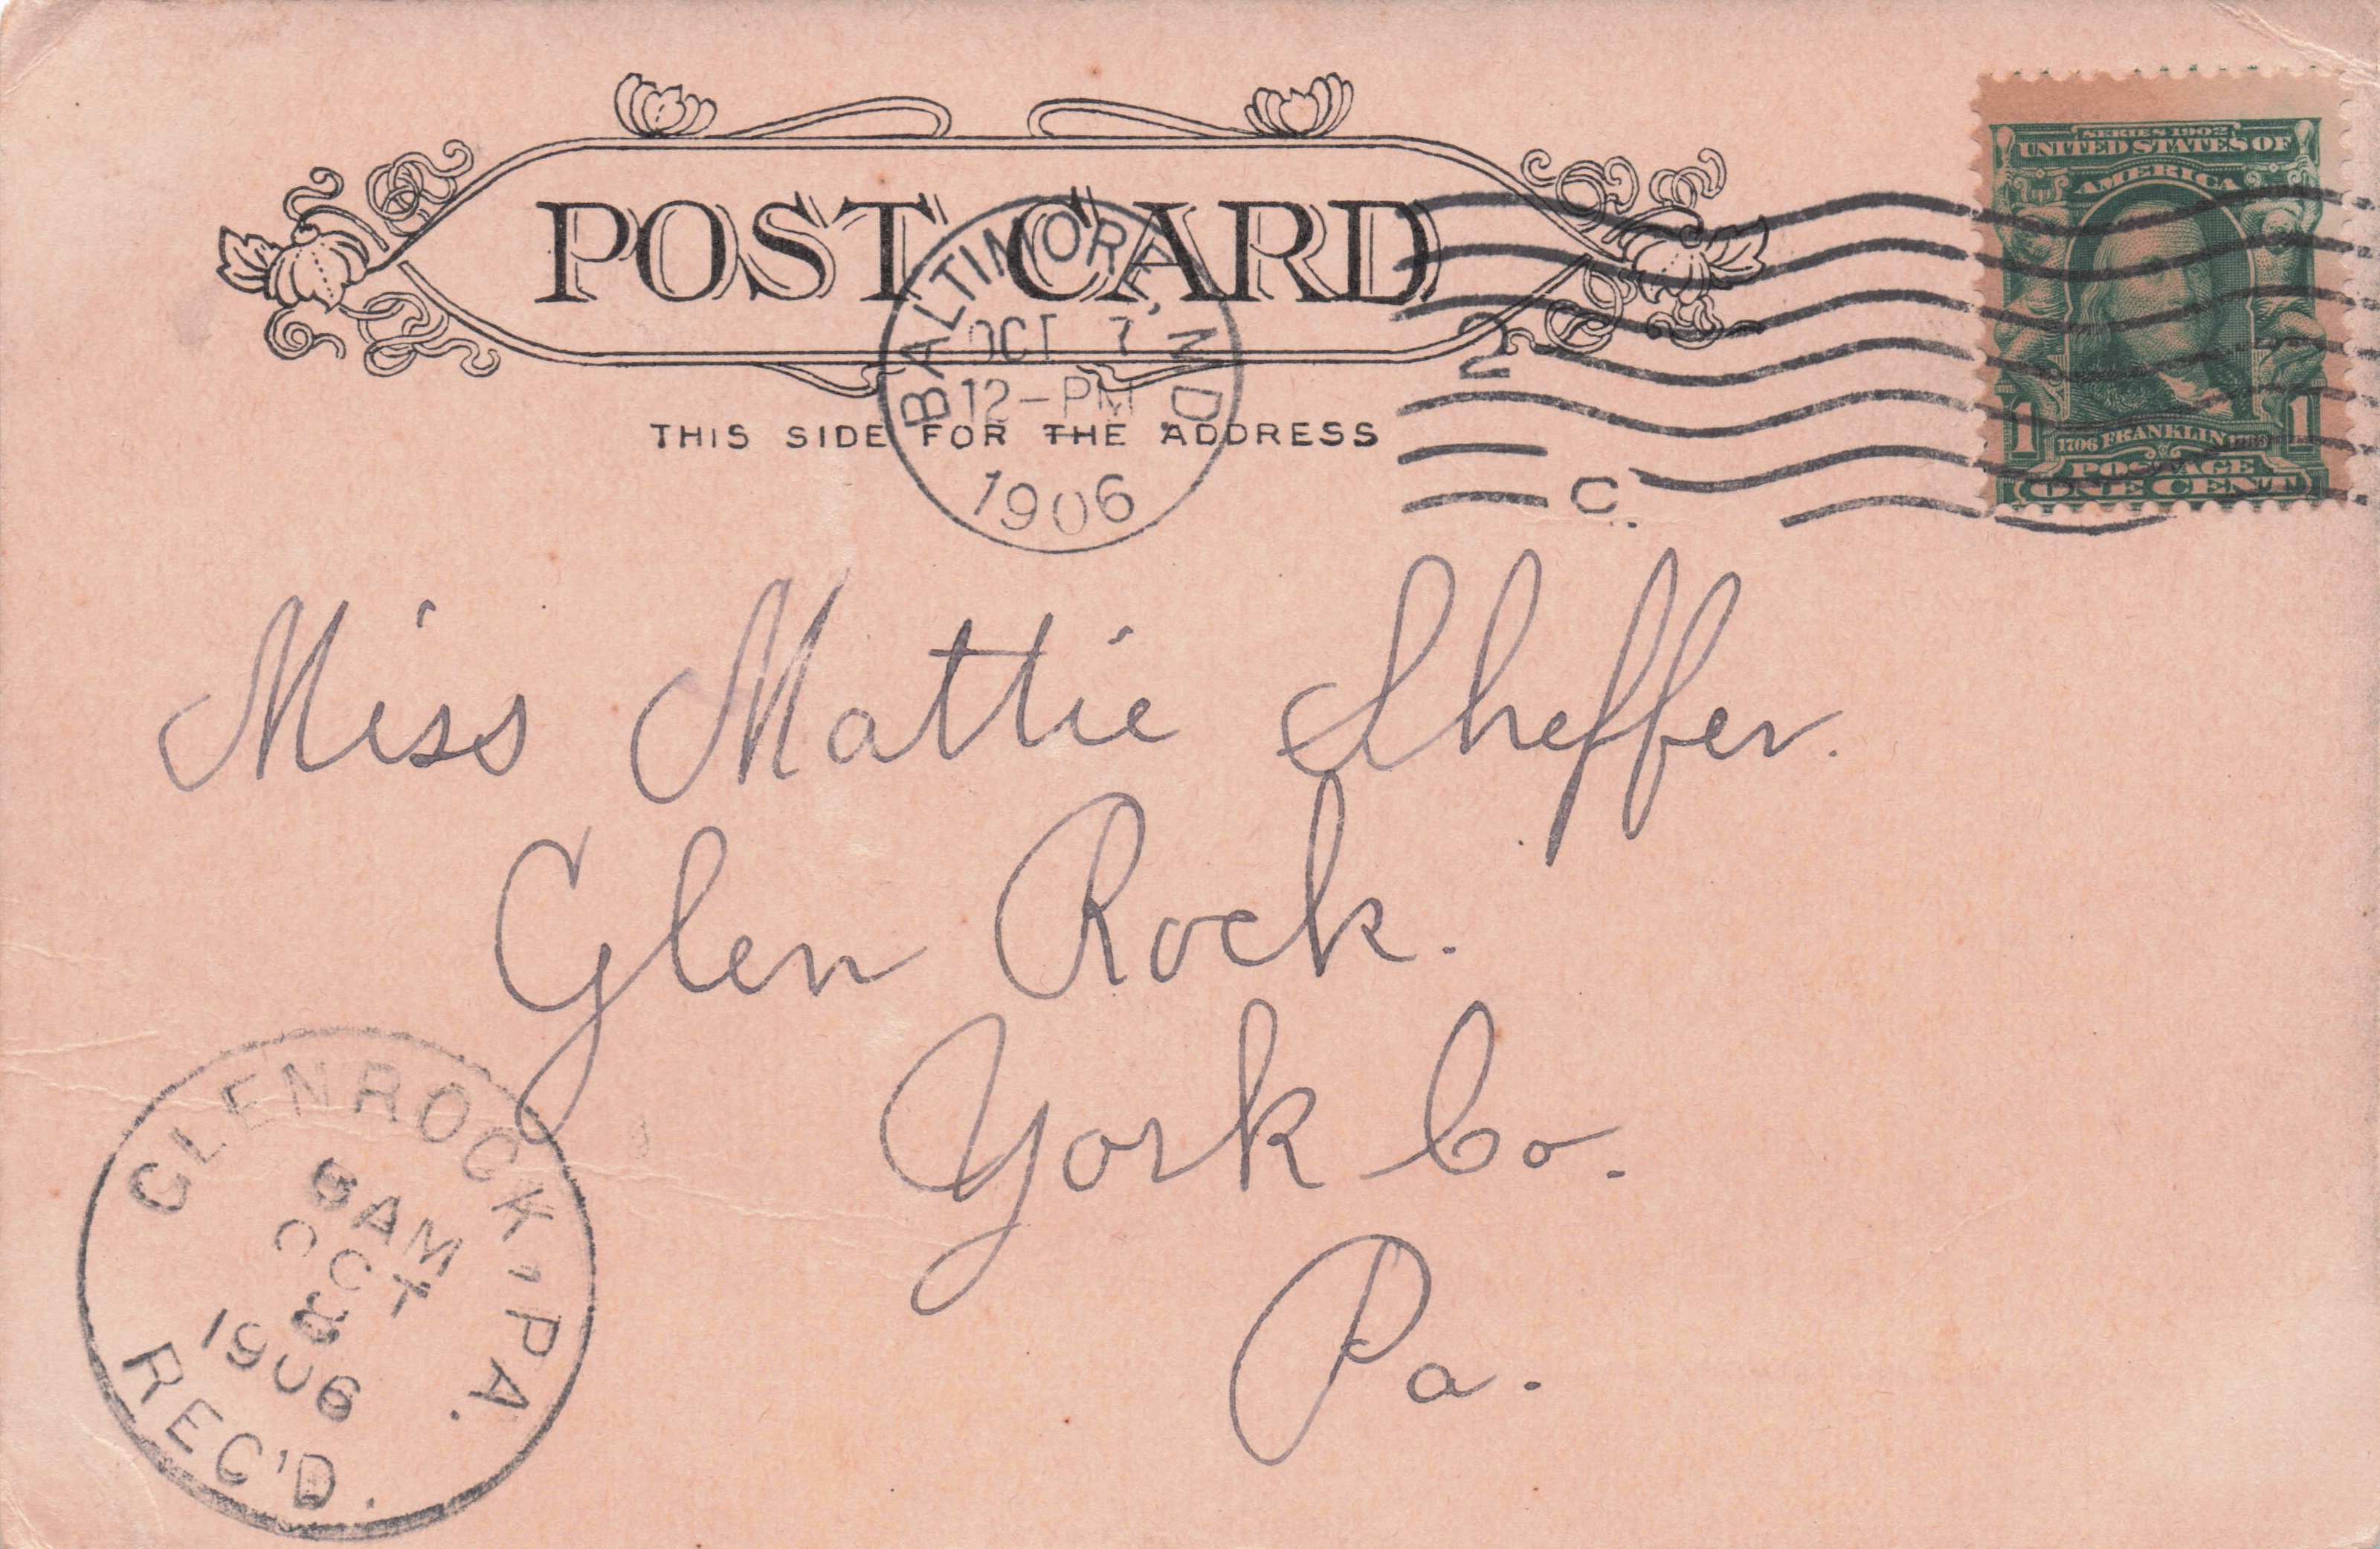 SERIES 1902
UNITED STATES OF
AMERICA
POST CARD
BALTIMORE, MD.
OCT 7
12-PM
1906
2
C.
THIS SIDE FOR THE ADDRESS
1 1
1706 FRANKLIN
POSTAGE
ONE CENT
Miss Mattie Sheffer.
Glen Rock.
York Co.
Pa.
GLENROCK, PA.
AM
OCT
8
1906
REC'D.